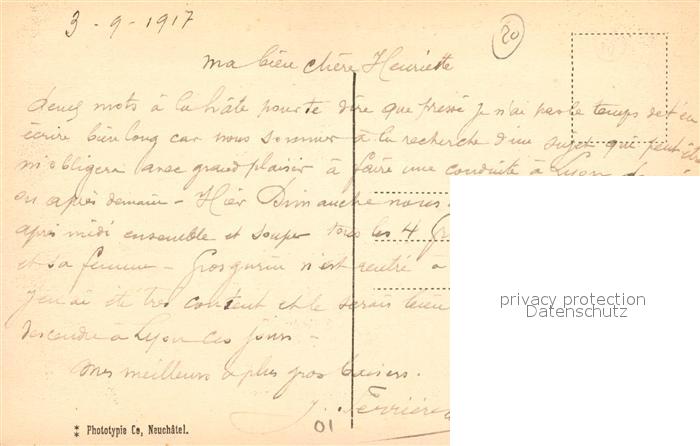 3-9-1917
20
Ma bien chère Henriette
deux mots à la hâte pour te dire que pressé je n'ai pas le temps de t'en
écrire bien long car nous sommes à la recherche d'un sujet qui peut être
m'obligera avec grand plaisir à faire une conduite à Lyon
ou après demain - Hier Dimanche nous
après midi ensemble et souper tous les 4
et sa femme - Grosgurin n'est rentré à
J'en ai été très content et le serais bien
descendre à Lyon ces jours -
Mes meilleurs & plus gros baisers.
J. Ferrière
01
privacy protection
Datenschutz
Phototypie Co, Neuchâtel.